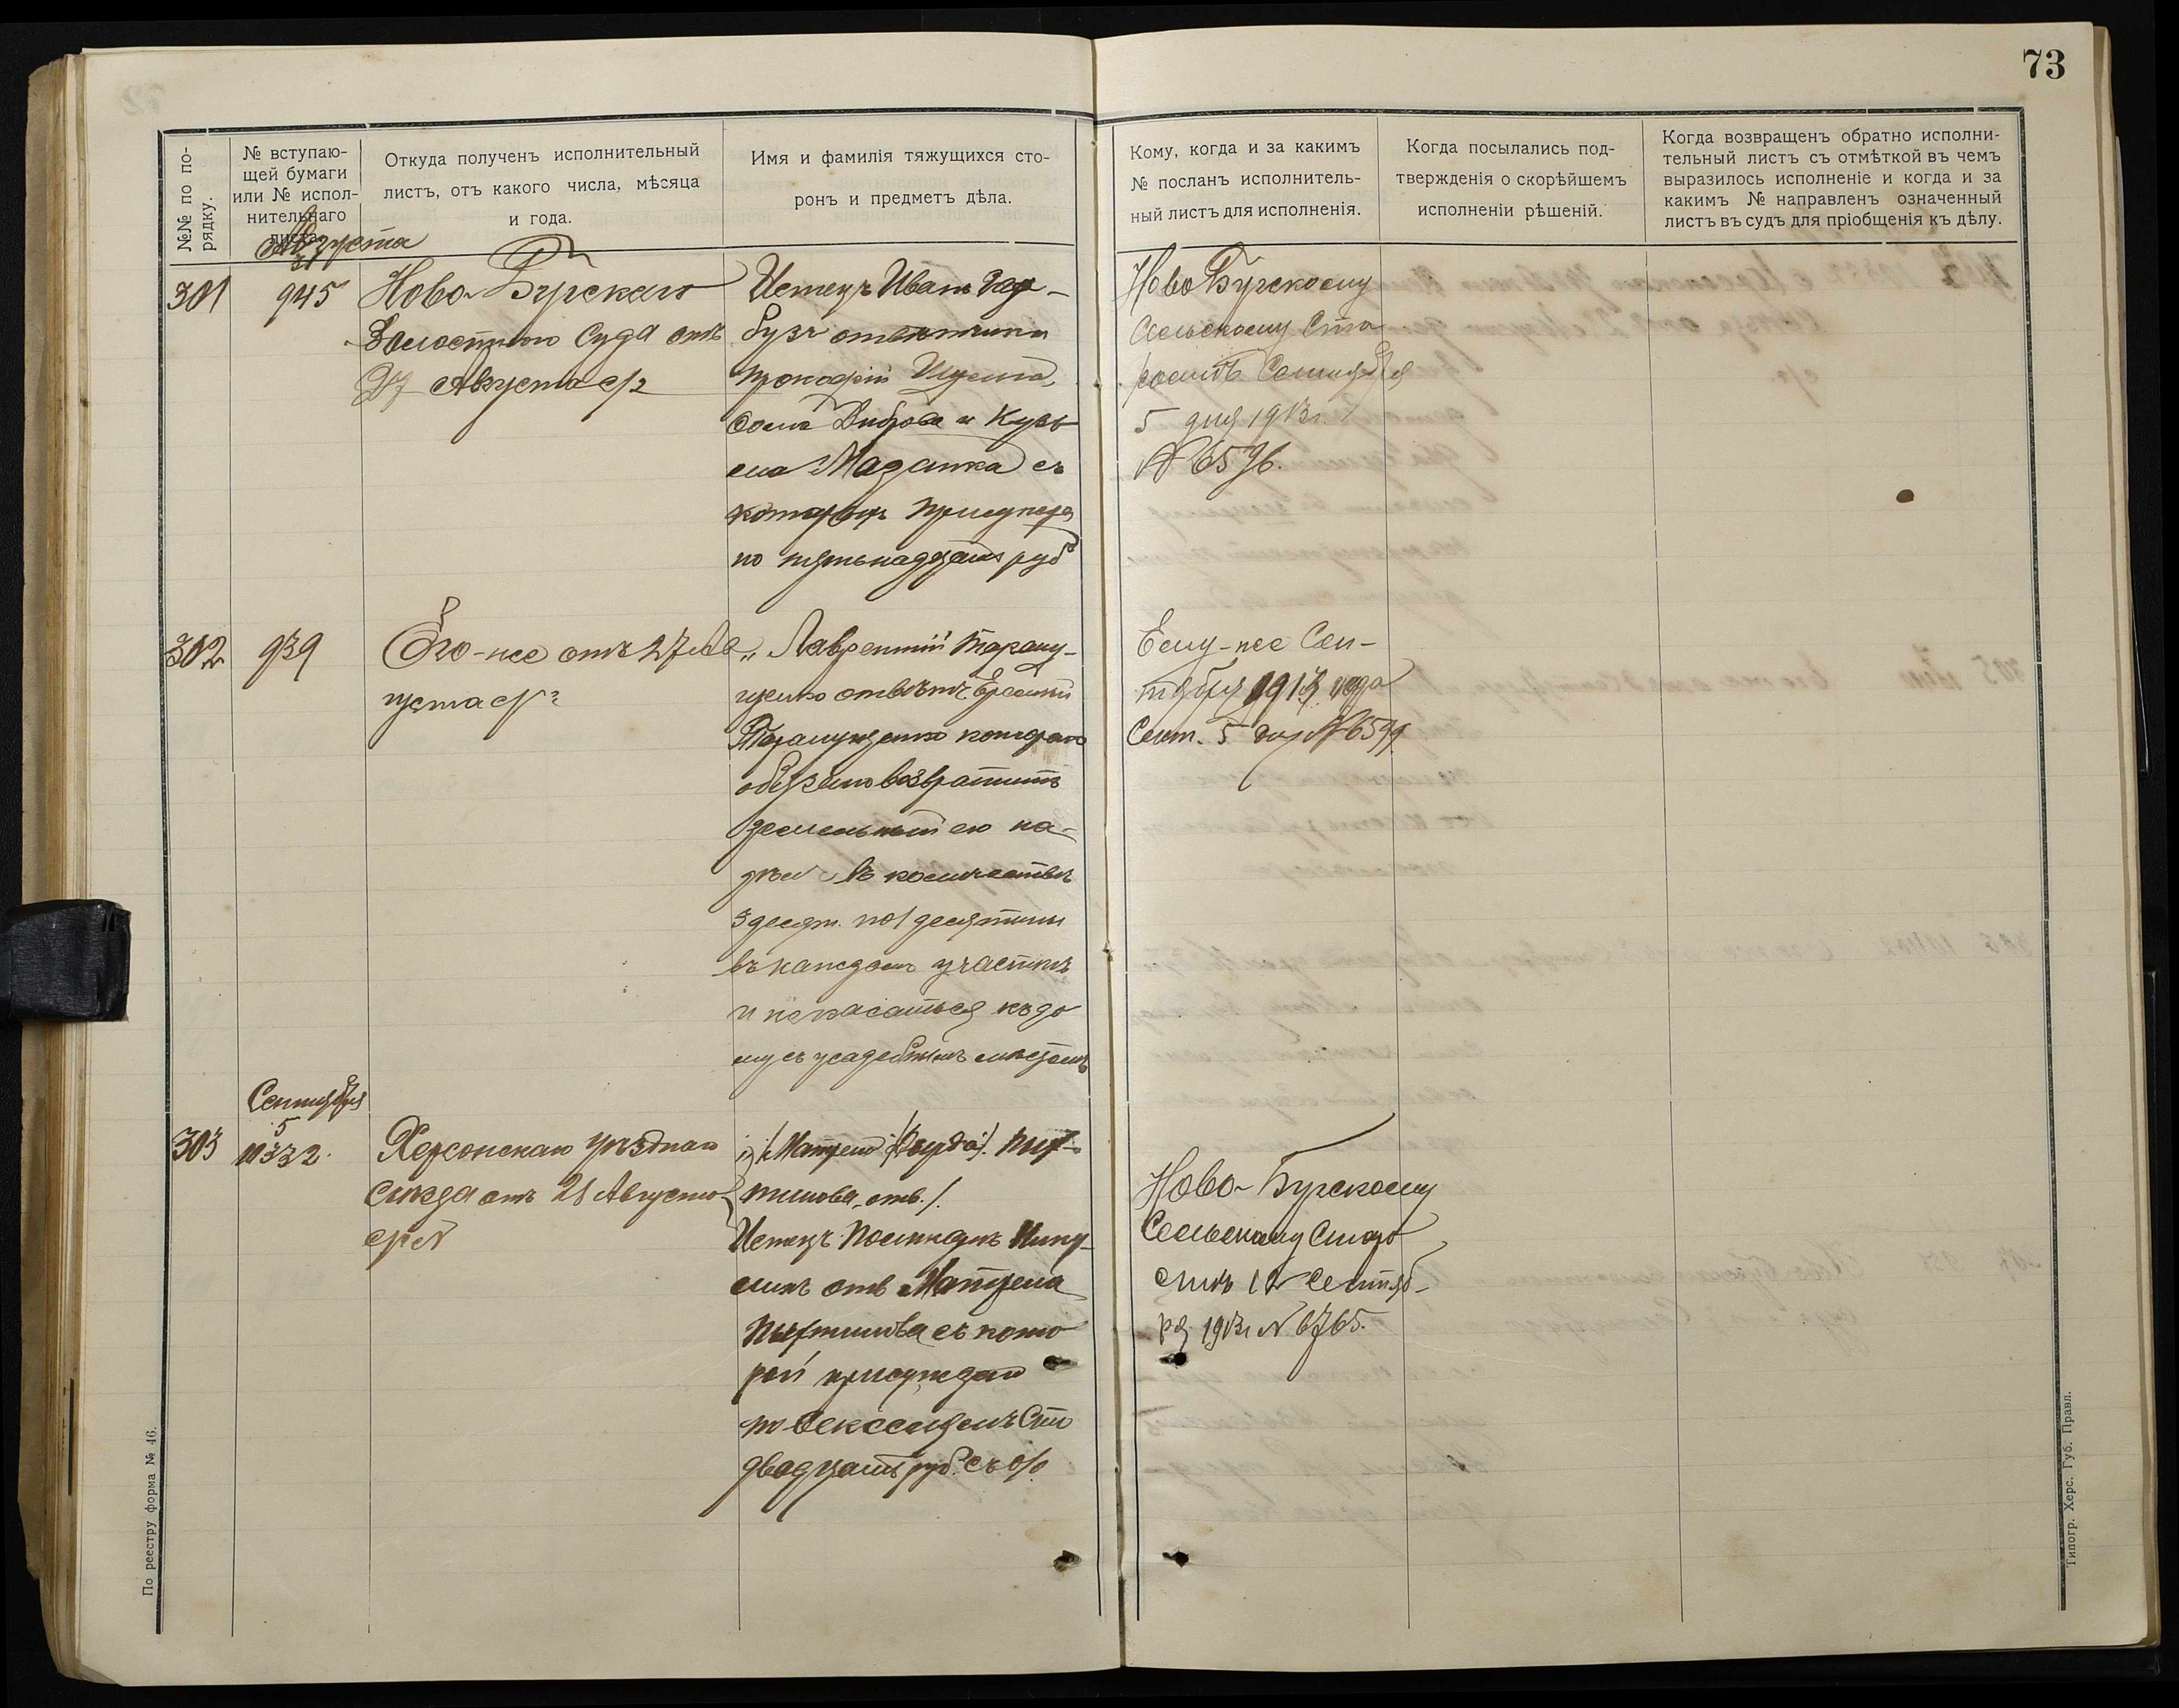 73
№№ по по-
рядку.
№ вступаю-
щей бумаги
или № испол-
нительнаго
листа.
Откуда полученъ исполнительный
листъ, отъ какого числа, мѣсяца
и года.
Имя и фамилія тяжущихся сто-
ронъ и предметъ дѣла.
Кому, когда и за какимъ
№ посланъ исполнитель-
ный листъ для исполненія.
Когда посылались под-
твержденія о скорѣйшемъ
исполненіи рѣшеній.
Когда возвращенъ обратно исполни-
тельный листъ съ отмѣткой въ чемъ
выразилось исполненіе и когда и за
какимъ № направленъ означенный
листъ въ судъ для пріобщенія къ дѣлу.
Августа
31
301
945
Ново-Бугскаго
Волостного Суда отъ
27 Августа с/г
Истецъ Иванъ Гар-
бузъ отвѣтчики
Прокофій
и Кузь
ма Мазанка съ
которыхъ
по пятьнадцать руб
Ново Бугскому
Сельскому Ста
ростѣ Сентября
5 дня 1913 г.
№ 6596.
302
939
Его-же отъ 27 Ав
густа с/г
„ Лаврентій Тараму-
щенко отвѣтч.
которого
обязано возвратить
земельный его на-
дѣл въ количествѣ
3 десят. по 1 десятины
въ каждомъ участкѣ
и не касаться къ до
му съ усадебнымъ мѣстомъ
Ему-же Сен-
тября 1913 года
Сент. 5 дня № 6599
Сентября
5
303
10332.
Херсонскаго уѣзднаго
съѣзда отъ 21 Августа
с/г
отв./.
Истецъ
отв Матрена
съ кото
рой присуждено
по векселямъ Сто
двадцать руб. съ %
Ново-Бугскому
Сельскому Старо
стѣ 12 Сентяб-
ря 1913 г № 6765.
По реестру форма № 46.
Типогр. Херс. Губ. Правл.